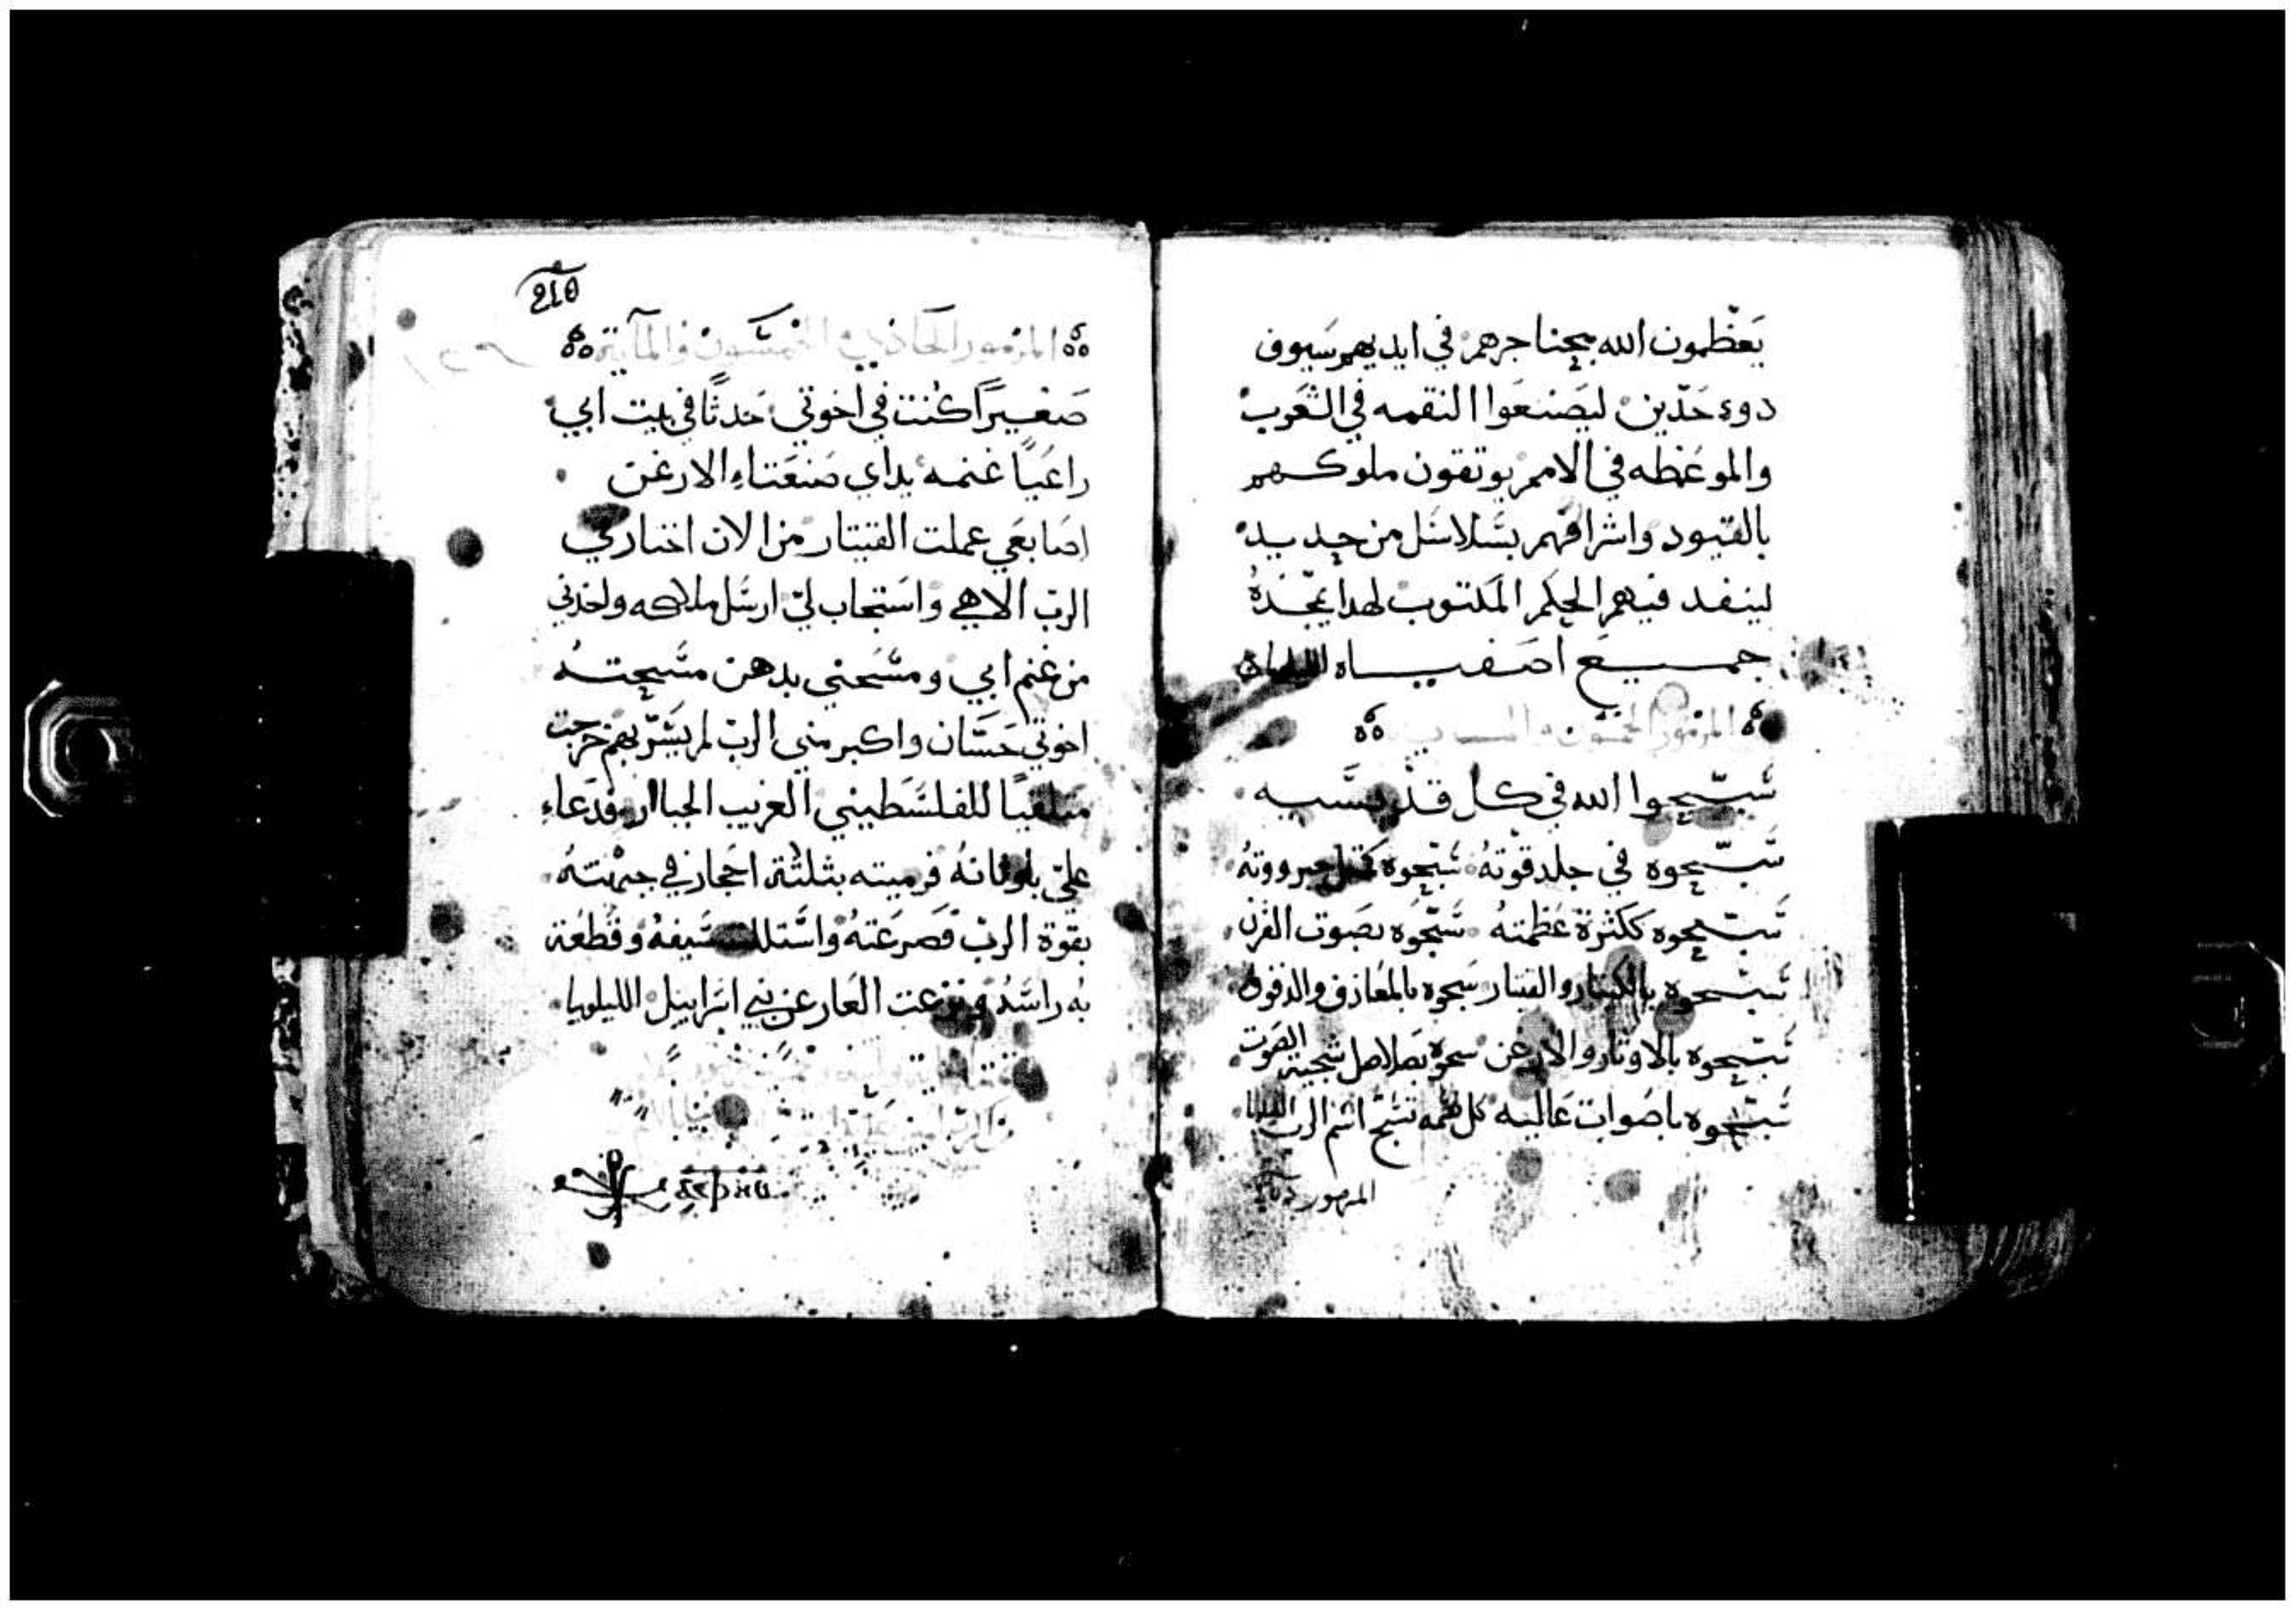 يعَظّمون الله بحناجرهم في ايديهم سَيوف
دوء حَدّين ليصَنعَوا النقمه في الشعَوب
والموعَظه في الامم يوتقون ملوكهم
بالقيود واشرافهم بسَلاسَل من حديد
لينفد فيهم الحكم المكتوب لهدا يمجده
جميع اصَفياه الليلويا
المزمور الخمسون والمـ
سَبّحوا الله في كل قديسَيه
سَبّحوه في جلد قوّتهُ سَبّحوه جبرووتهُ
سَبّحوه ككثرة عَظمتهُ سَبّحَوه بصَوت القرن
سَبّحوه بالكيتار والقيتار سَبحوه بالمعَازف والدفوف
سَبّحوه بالاوتار والارغن سبحوه بصَلاصل شجية الصَوت
سَبّحوه باصَوات عَاليه كل نسَمه تسَبّح اسَم الرب الليلويا
المزمور
210
المزمور الحَادي الخمسَون والمآية
صَغيرًا كُنت في اخوتي حَدثًا في بيت ابي
راعَيًا غنمه يداي صَنعَتاءِ الارغن
اصَابعَي عملت القيتار من الان اختاري
الربّ الاهي واسَتجاب ليّ ارسَل ملاكه واخذني
من غنم ابي ومسَحني بدهن مسَحتهُ
اخوتي حَسَان واكبر مني الربّ لم يسَرّ بهم خرجت
متلقيًا للفلسَطيني الغريب الجباار فدَعاءِ
عليّ باوثانهُ فرميته بثلثة احَجار في جبهتهُ
بقوة الربّ فصَرعَتهُ واسَتللت سَيفهُ وقطعَة
به راسَهُ ونزعت العَار عن بني اسَراييل الليلويا